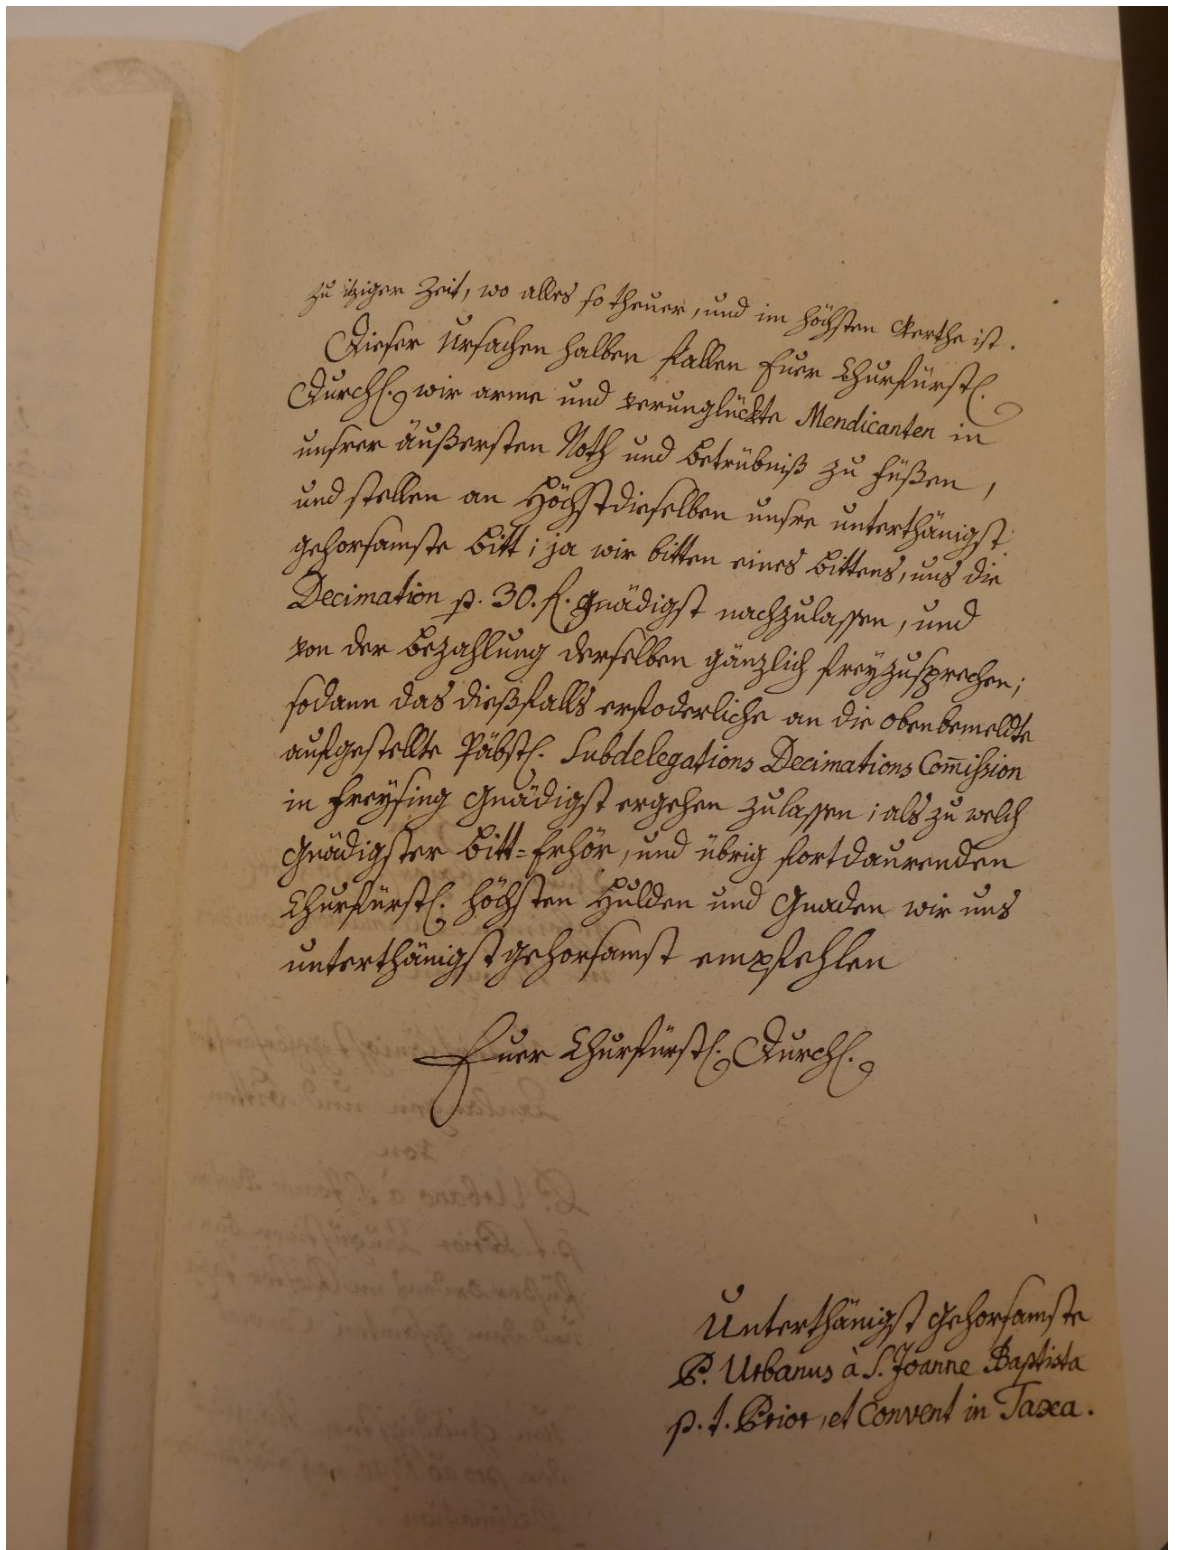 zu itziger Zeit, wo alles so theuer, und im höchsten Werthe ist.
Dieser Ursachen halben fallen Euer Churfürstl.
Durchl. wir arme und verunglückte Mendicanten in
unsrer äußersten Noth und Betrübniß zu Füßen,
und stellen an Höchstdieselben unsre unterthänigst
gehorsamste Bitt; ja wir bitten eines Bittens, uns die
Decimation p. 30. fl. gnädigst nachzulassen, und
von der Bezahlung derselben gänzlich freyzusprechen;
sodann das dießfalls erfoderliche an die obenbemeldte
aufgestellte Päbstl. Subdelegations Decimations Com̅ission
in Freysing gnädigst ergehen zulassen; als zu welch
gnädigster Bitt=Erhör, und übrig fortdaurenden
Churfürstl. höchsten Hulden und Gnaden wir uns
unterthänigst gehorsamst empfehlen
Euer Churfürstl. Durchl.
Unterthänigst gehorsamste
P. Urbanus à S. Joanne Baptista
p. t. Prior, et Convent in Taxa.